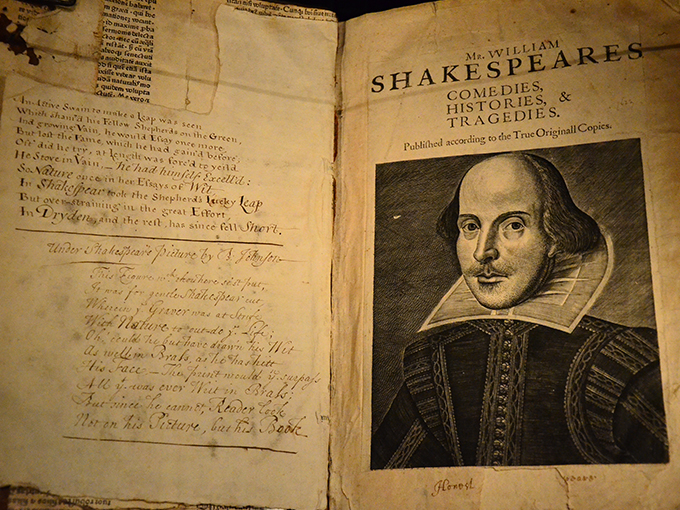 An Active Swain to make a Leap was seen
Which sham'd his Fellow Shepherds on the Green,
And growing Vain, he would Essay once more,
But lost the Fame, which he had gain'd before;
Oft' did he try, at Length was forc'd to yeild
He Strove in Vain, — he had himself Excell'd:
So Nature once in her Essays of Wit,
In Shakespear took the Shepherd's Lucky Leap
But over-straining in the great Effort,
In Dryden, and the rest, has since fell Short.
Under Shakespears Picture by B. Johnson
This Figure yt. thou here se'st put,
It was for gentle Shakespear cut,
Wherein ye Graver was at Strife
With Nature to out-do ye Life;
Oh, could he but have drawn his Wit
As well in Brass, as he has hitt
His Face — The print would yn. surpass
All yt. was ever Writ in Brass;
But since he cannot, Reader look
Not on his Picture, but his Book
Mr. WILLIAM
SHAKESPEARES
COMEDIES,
HISTORIES, &
TRAGEDIES.
Published according to the True Originall Copies.